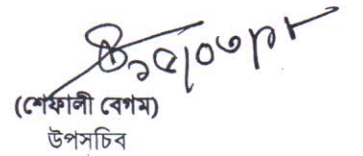 (শেফালী বেগম)
উপসচিব